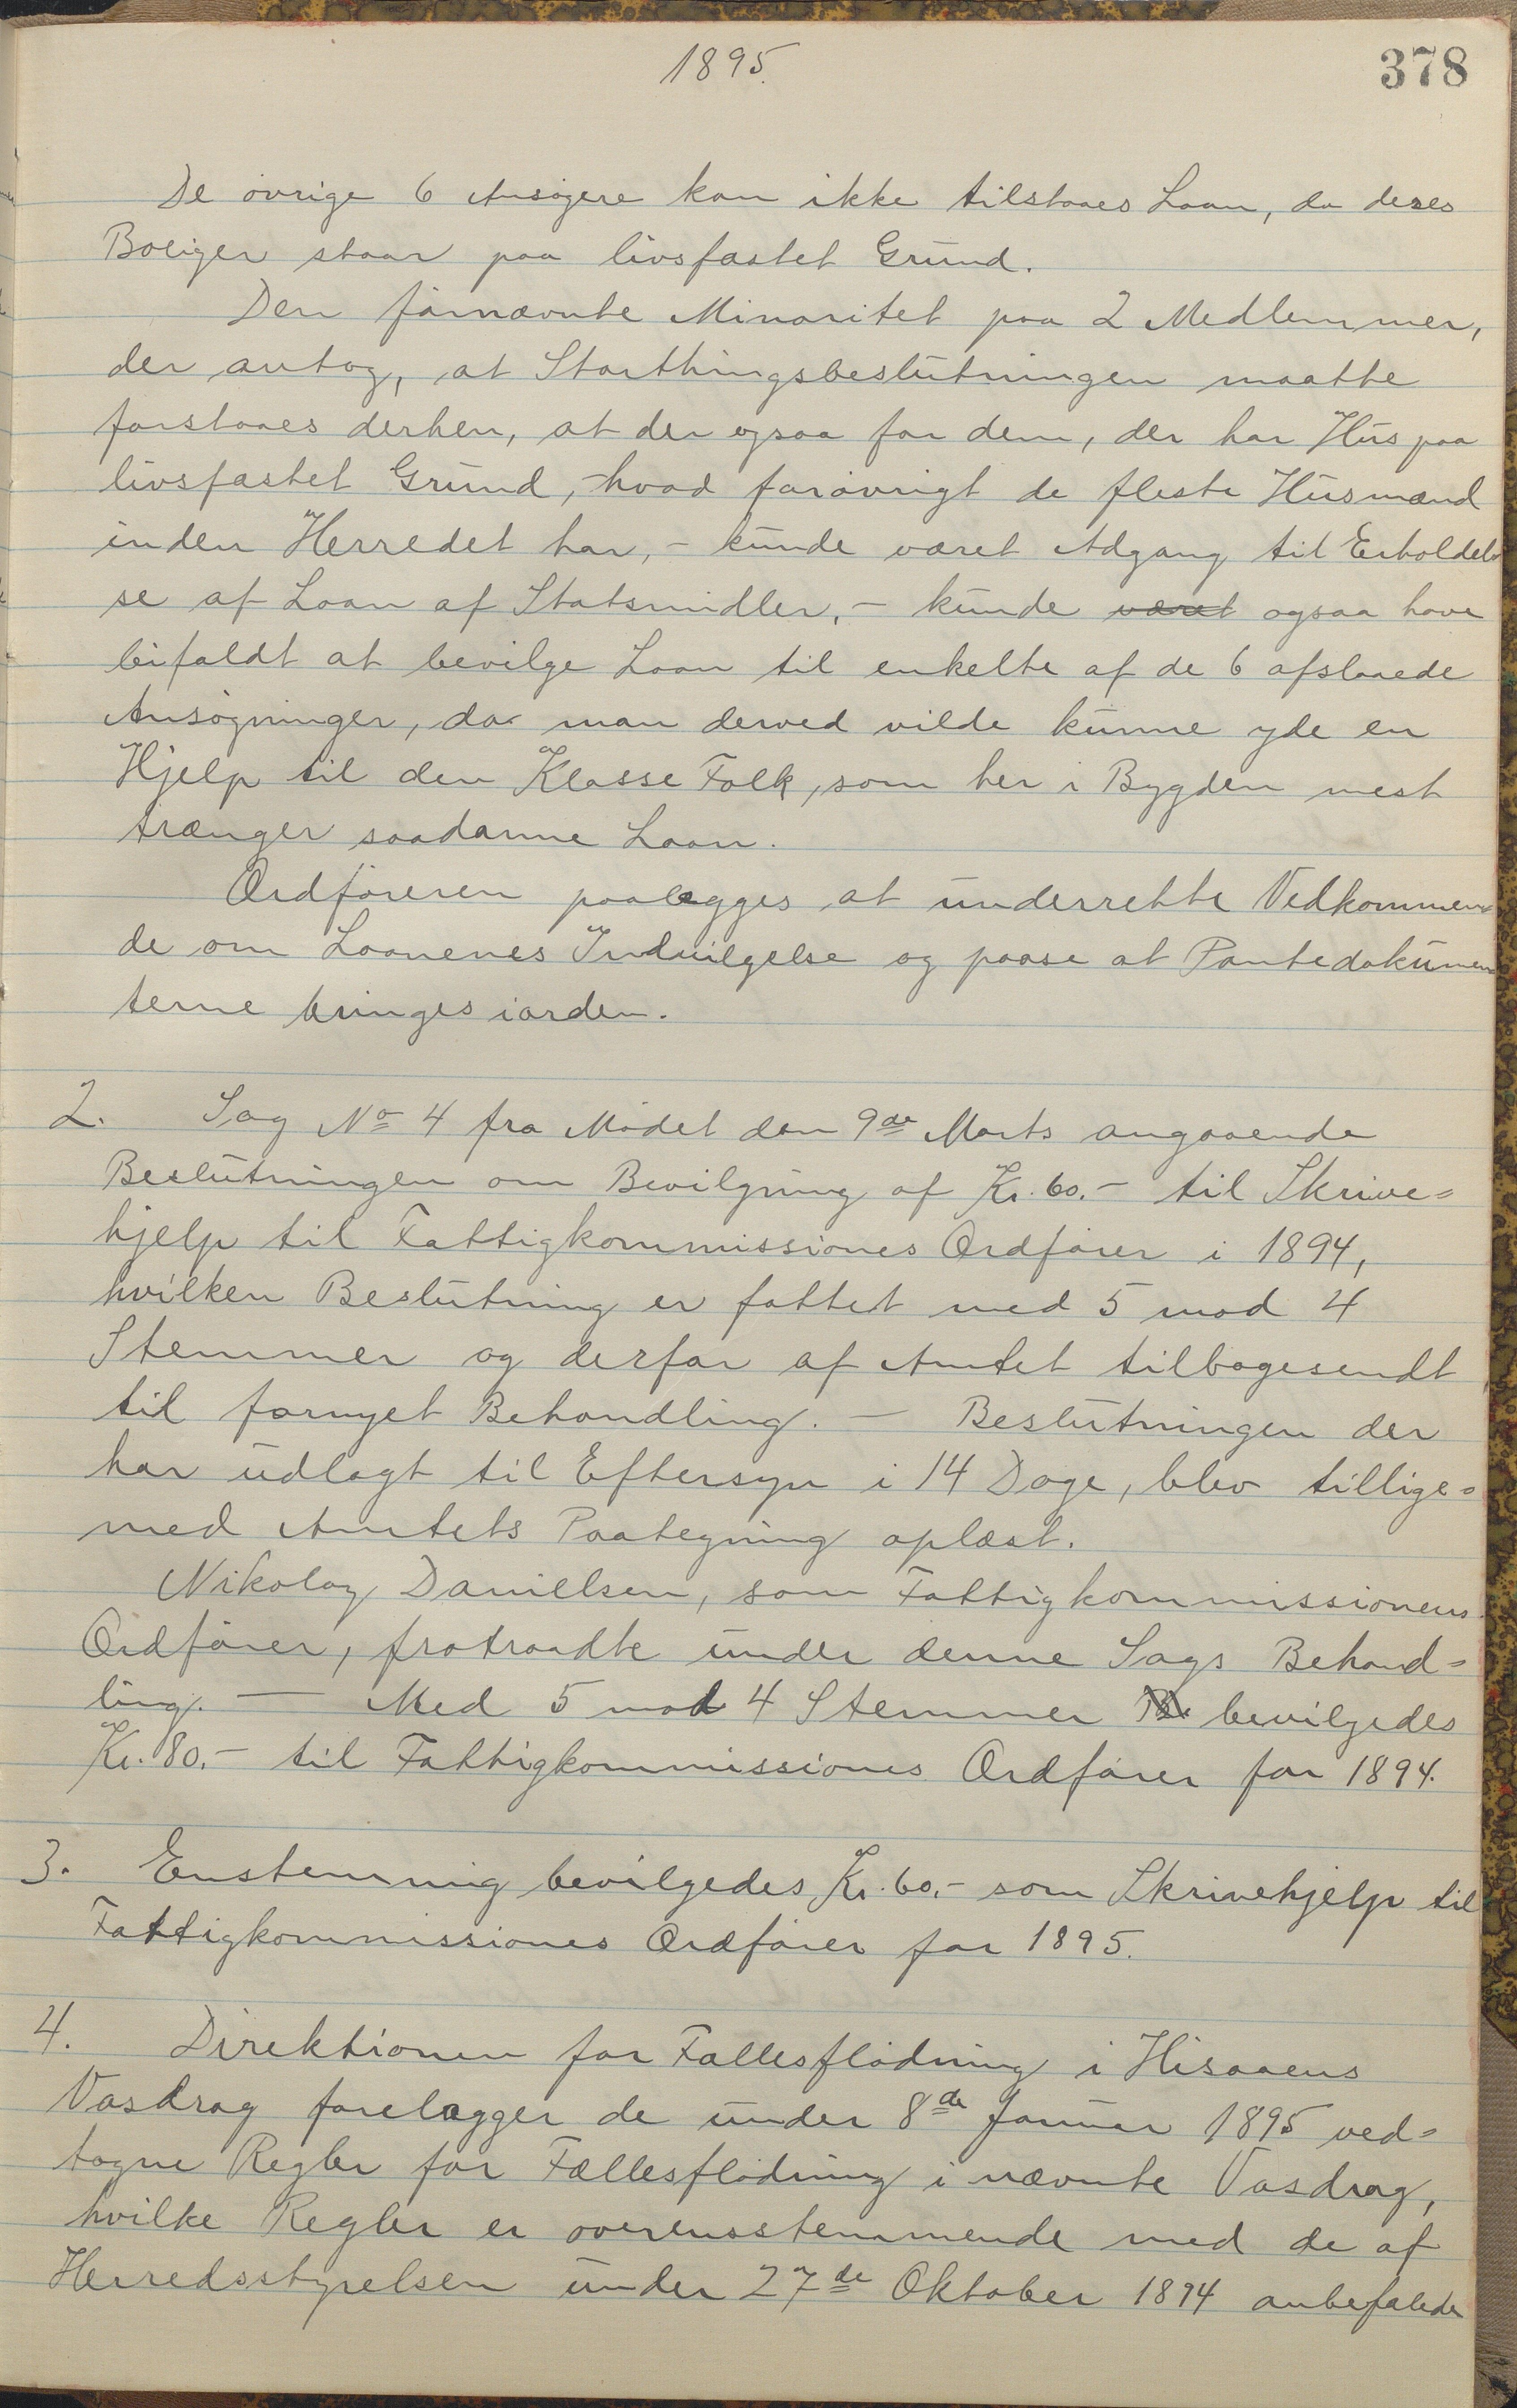 1895.
378
De øvrige 6 Ansøgere kan ikke tilstaaes Laan, da deres
Boliger staar paa livsfæstet Grund.
Den førnævnte Minoritet paa 2 Medlemmer,
der antog, at Storthingsbeslutningen maatte
forstaaes derhen, at der ogsaa for dem, der har Hus paa
livsfæstet Grund, – hvad forøvrigt de fleste Husmænd
inden Herredet har, – kunde været Adgang til Erholdel-
se af Laan af Statsmidler, – kunde været ogsaa have
bifaldt at bevilge Laan til enkelte af de 6 afslaaede
Ansøgninger, da man derved vilde kunne yde en
Hjelp til den Klasse Folk, som her i Bygden mest
trænger saadanne Laan.
Ordføreren paalægges at underrette Vedkommen-
de om Laanenes Indvilgelse og paase at Pantedokumen
terne bringes iorden.
2. Sag No 4 fra Mødet den 9de Marts angaaende
Beslutningen om Bevilgning af Kr. 60.– til Skrive=
hjelp til Fattigkommissiones Ordfører i 1894,
hvilken Beslutning er fattet med 5 mod 4
Stemmer og derfor af Amtet tilbagesendt
til fornyet Behandling. – Beslutningen der
har udlagt til Eftersyn i 14 Dage, blev tillige=
med Amtets Paategning oplæst.
Nikolay Danielsen, som Fattigkommissionens
Ordfører, fratraadte under denne Sags Behand=
ling. – Med 5 mod 4 Stemmer Be bevilgedes
Kr. 80.– til Fattigkommissiones Ordfører for 1894.
3. Enstemmig bevilgedes Kr. 60.– som Skrivehjelp til
Fattigkommissiones Ordfører for 1895.
4. Direktionen for Fællesflødning i Hisaaens
Vasdrag forelægger de under 8de Januar 1895 ved=
tagne Regler for Fællesflødning i nævnte Vasdrag,
hvilke Regler er overensstemmende med de af
Herredsstyrelsen under 27de Oktober 1894 anbefalede